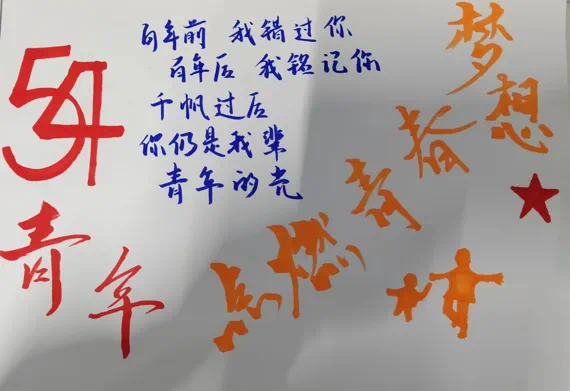 54
青年
百年前 我错过你
百年后 我铭记你
千帆过后
你仍是我辈
青年的光
点燃青春梦想